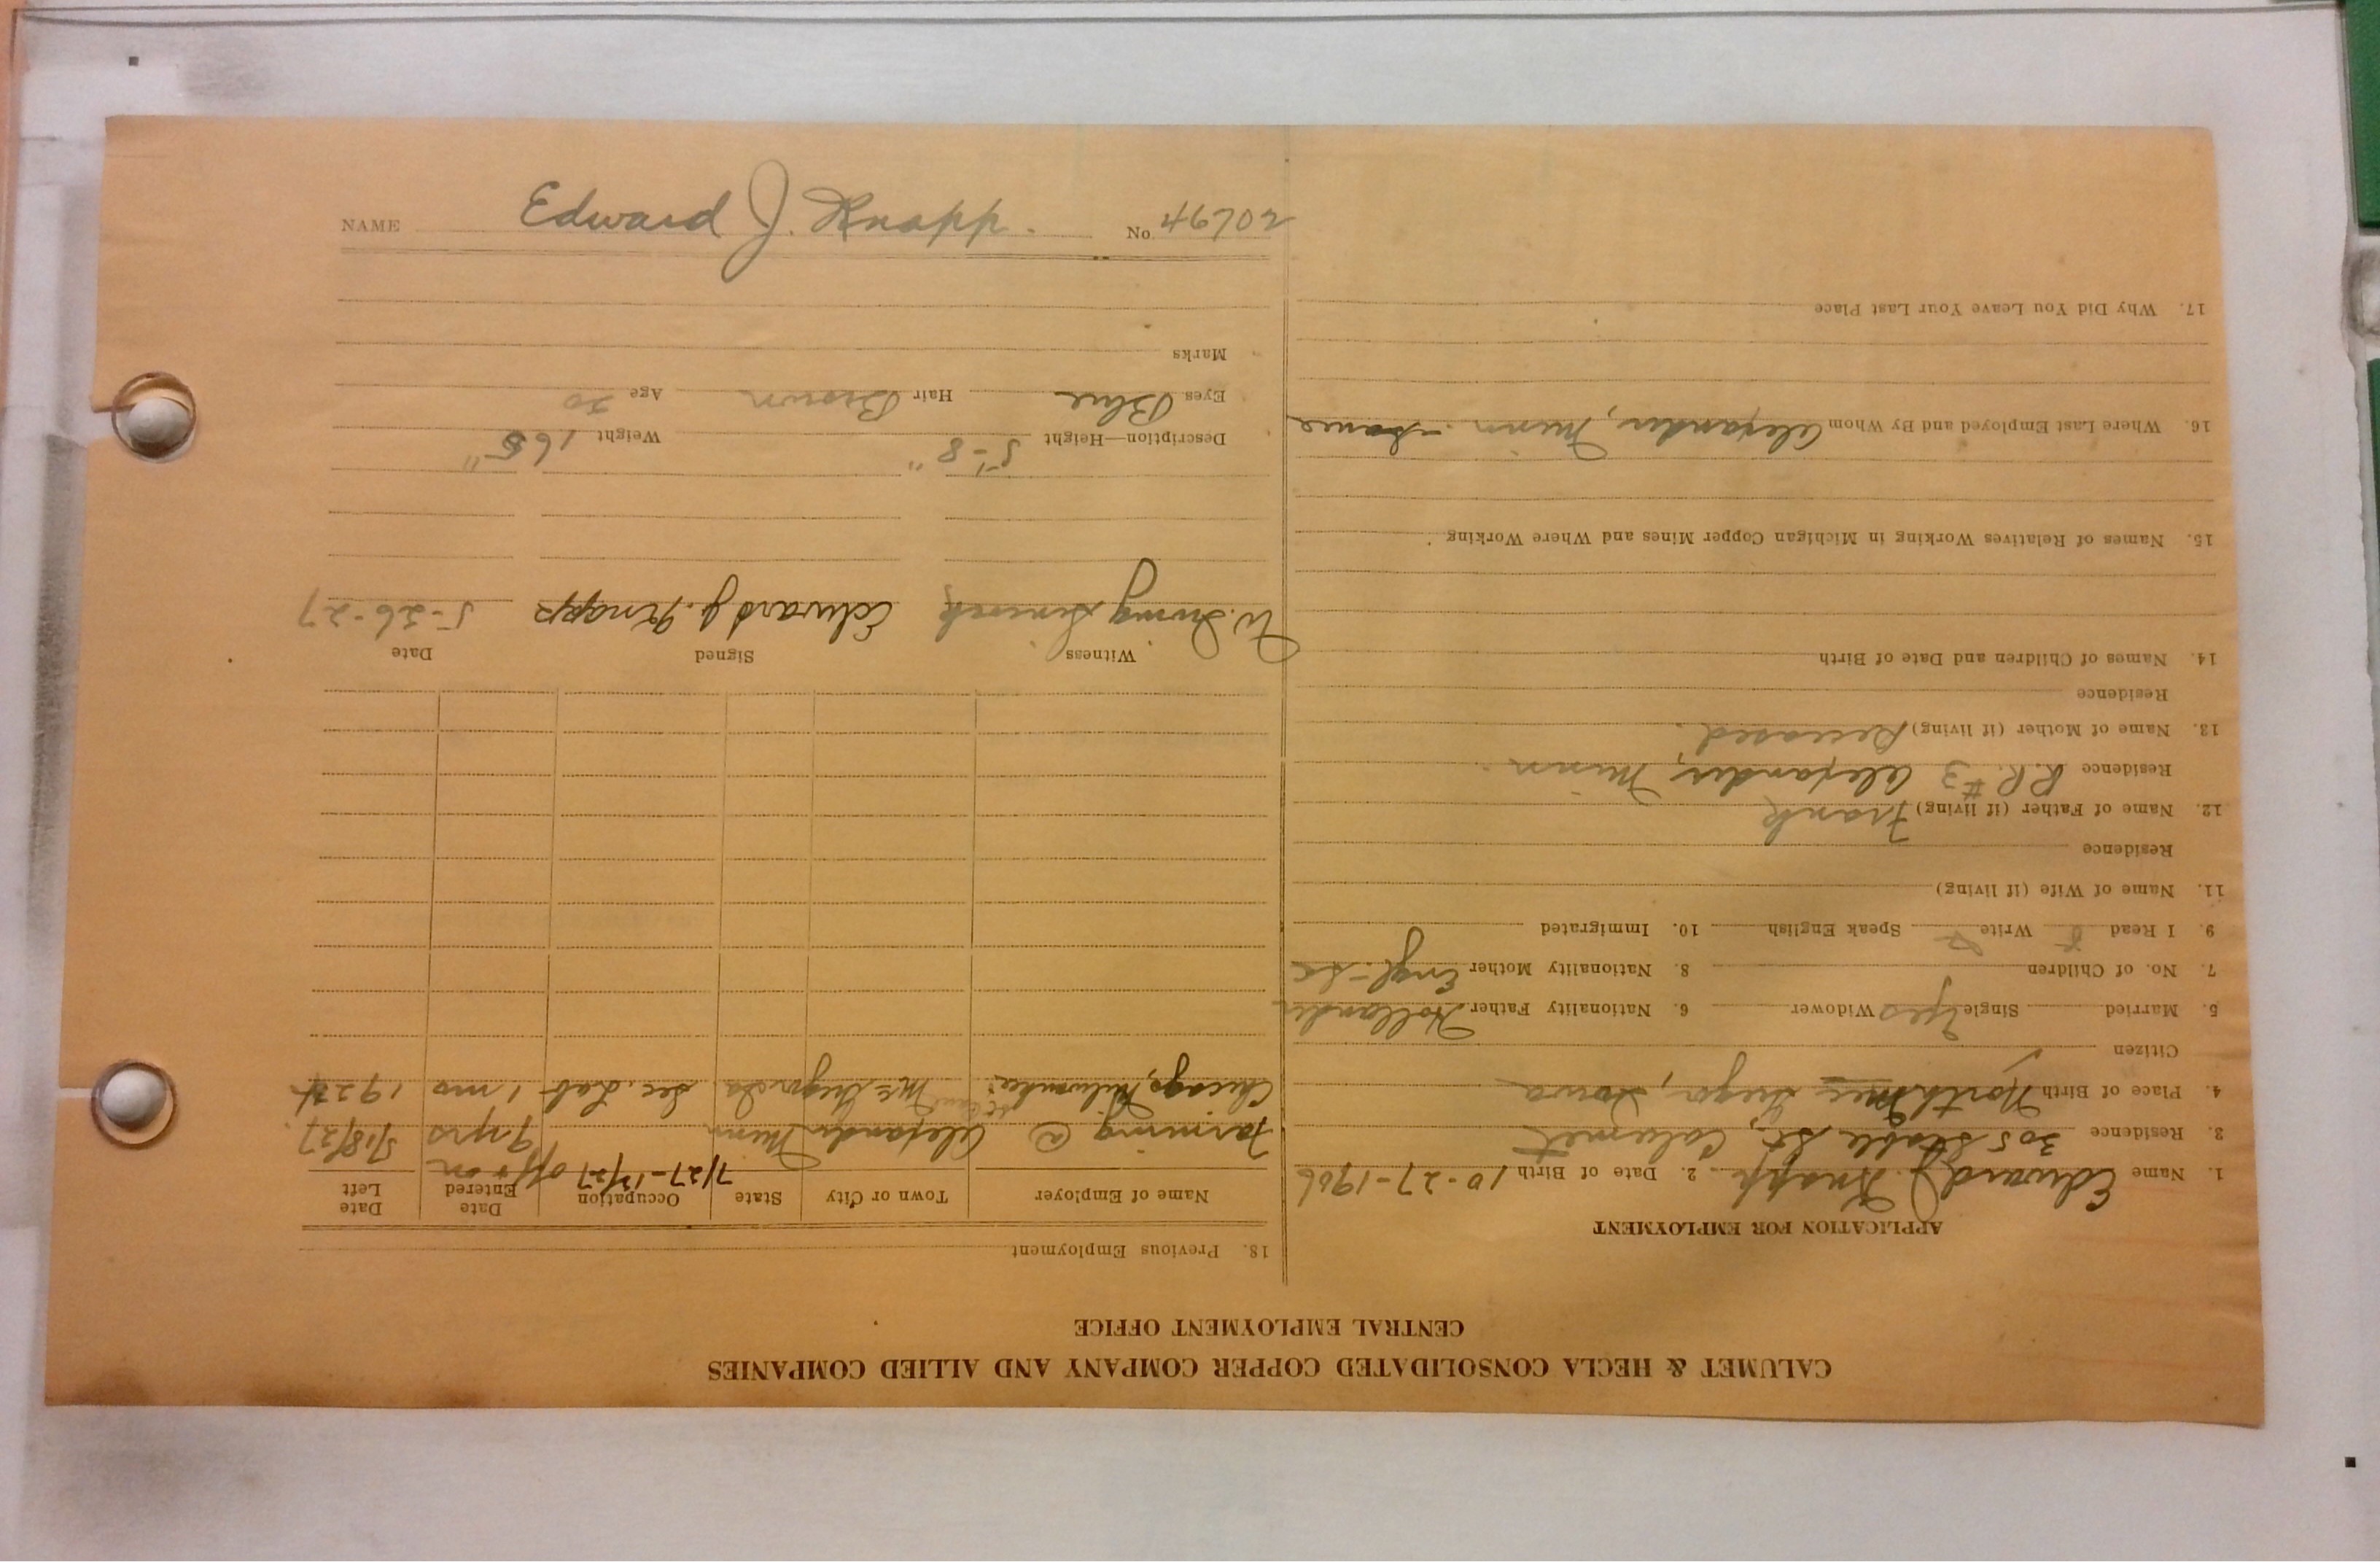 CALUMET & HECLA CONSOLIDATED COPPER COMPANY AND ALLIED COMPANIES
CENTRAL EMPLOYMENT OFFICE
APPLICATION FOR EMPLOYMENT
1. Name Edward J. Knapp 2. Date of Birth 10-27-1906
3. Residence 305 St., Calumet
4. Place of Birth North Mc Gregor, Iowa
Citizen ✓
5. Married Single yes Widower 6. Nationality Father Hollander
7. No. of Children 8. Nationality Mother Engl-
9. I Read Write Speak English 10. Immigrated
11. Name of Wife (if living)
Residence
12. Name of Father (if living) Frank
Residence R.R. #3 Alexander, Minn.
13. Name of Mother (if living) Deceased.
Residence
14. Names of Children and Date of Birth
15. Names of Relatives Working in Michigan Copper Mines and Where Working
16. Where Last Employed and By Whom Alexander, Minn. - Same
17. Why Did You Leave Your Last Place
18. Previous Employment
Name of Employer Town or City State Occupation Date Entered Date Left
7/27-12/27 off + on
Farming @ Alexander Minn 9 yrs 5/18/27
Chicago, Milwaukee & St Paul Mc Gregor Ia Sec. Lab 1 mo 1924
Witness Signed Date
W. Irving Edward J. Knapp 5-26-27
Description—Height 5'-8" Weight 165
Eyes Blue Hair Brown Age 20
Marks
NAME Edward J. Knapp. No. 20694